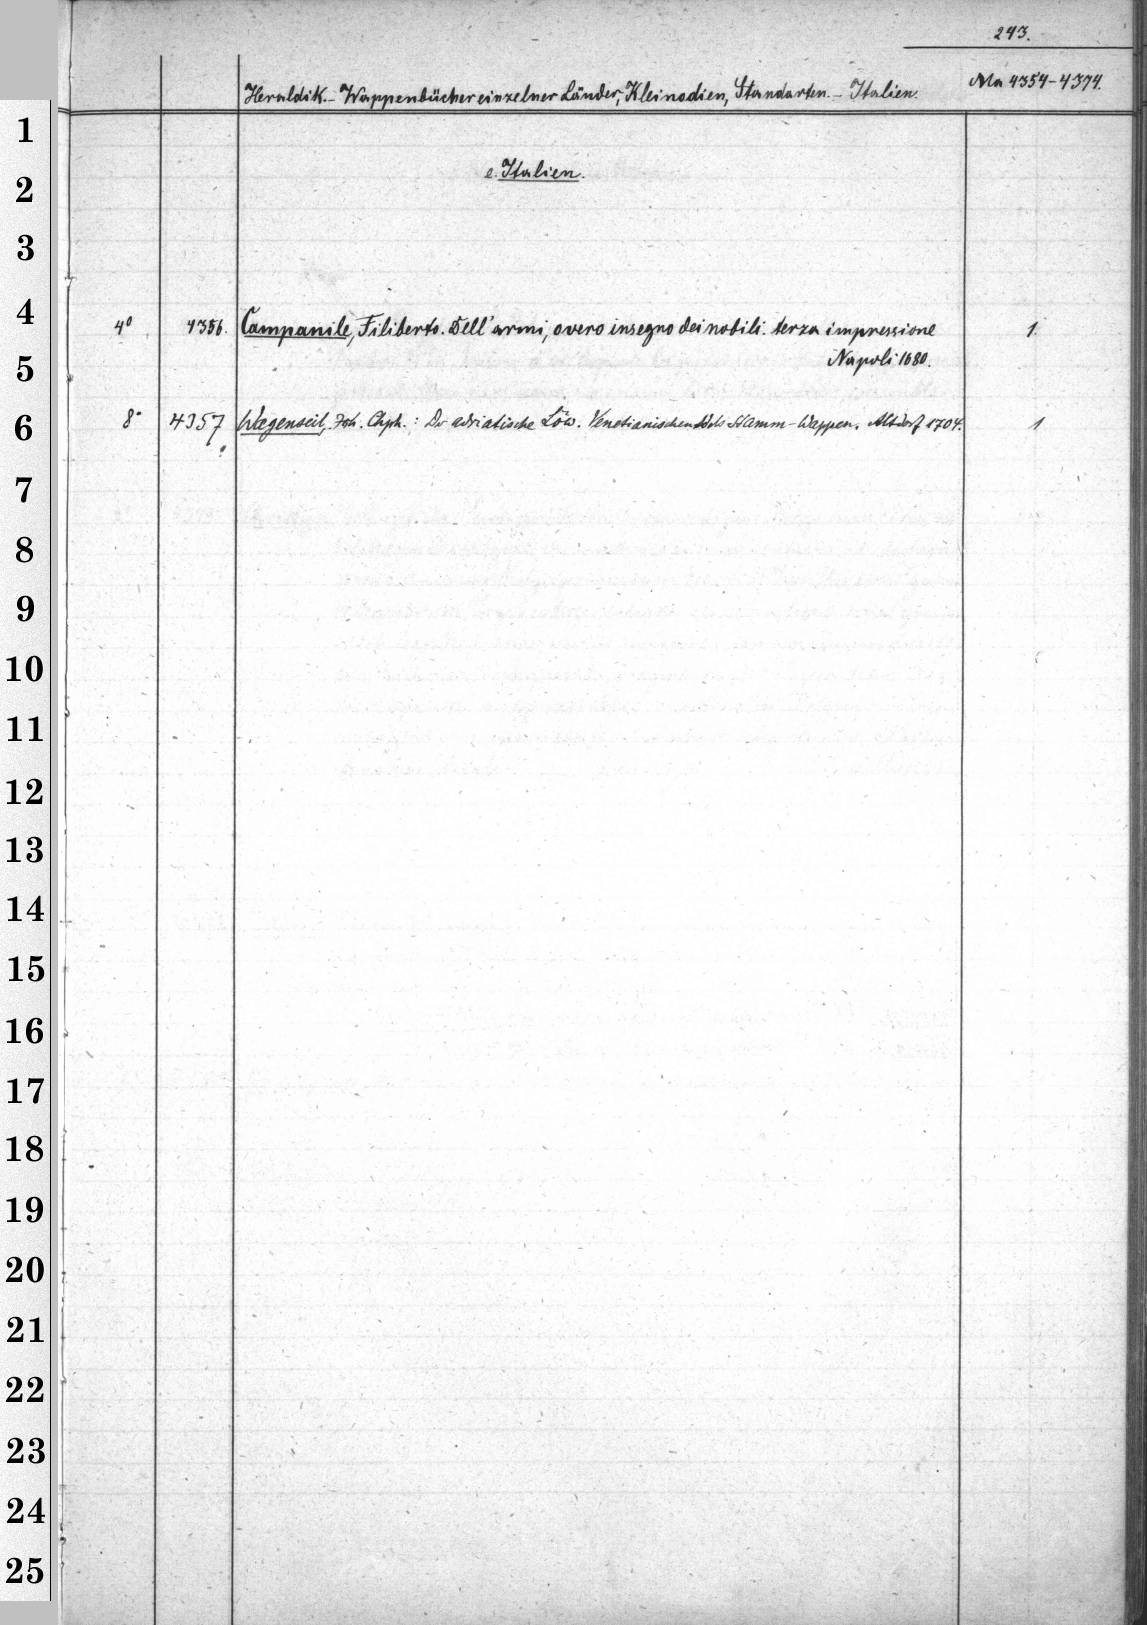 243.
Heraldik.- Wappenbücher einzelner Länder, Kleinodien, Standarten.- Italien. Ma 4354-4374.
e. Italien.
4° 4356. Campanile, Filiberto. Dell'armi, overo insegno dei nobili. terza impressione 1.
Napoli 1680.
8° 4357 Wagenseil, Joh. Chph.: Der adriatische Löw. Venetianischen Adels Stamm-Wappen. Altdorf 1704. 1
1
2
3
4
5
6
7
8
9
10
11
12
13
14
15
16
17
18
19
20
21
22
23
24
25